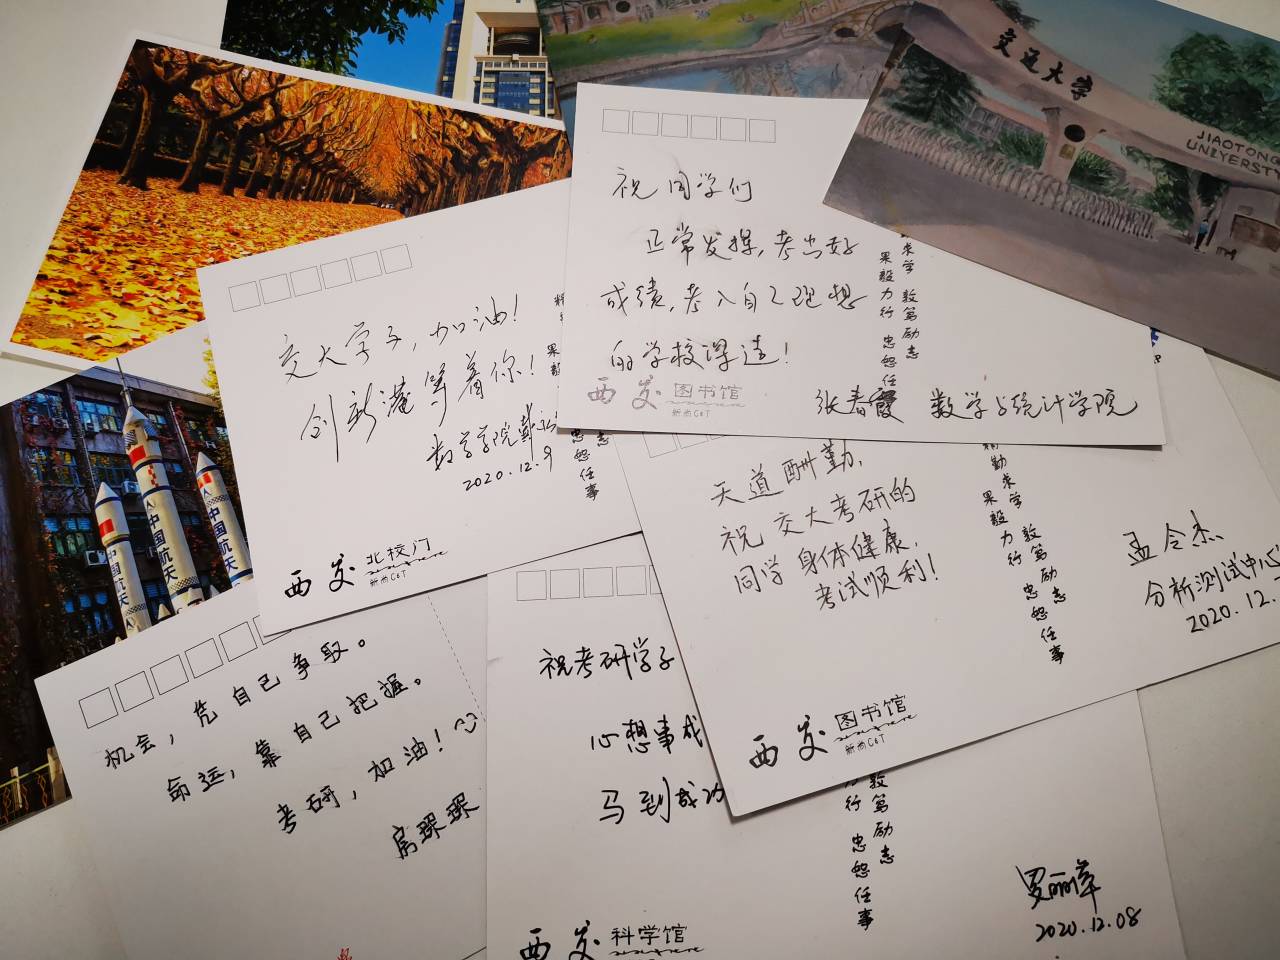 交通大学
JIAOTONG
UNIVERSTY
中国航天
中国航天
中国航天
祝同学们
正常发挥，考出好
成绩，考入自己理想
的学校深造！
张春霞 数学与统计学院
西交 图书馆
新尚C&T
求学 敦笃励志
果毅力行 忠恕任
交大学子，加油！
创新港等着你！
数学学院戴
2020.12.9
西交 北校门
新尚C&T
志
忠恕任事
天道酬勤，
祝交大考研的
同学身体健康，
考试顺利！
孟令杰
分析测试中心
2020.12.
西交 图书馆
新尚C&T
精勤求学 敦笃励志
果毅力行 忠恕任事
机会，凭自己争取。
命运，靠自己把握。
考研，加油！
房琛琛
祝考研学子
心想事成
马到成功
罗丽萍
2020.12.08
西交 科学馆
敦笃励志
力行 忠恕任事